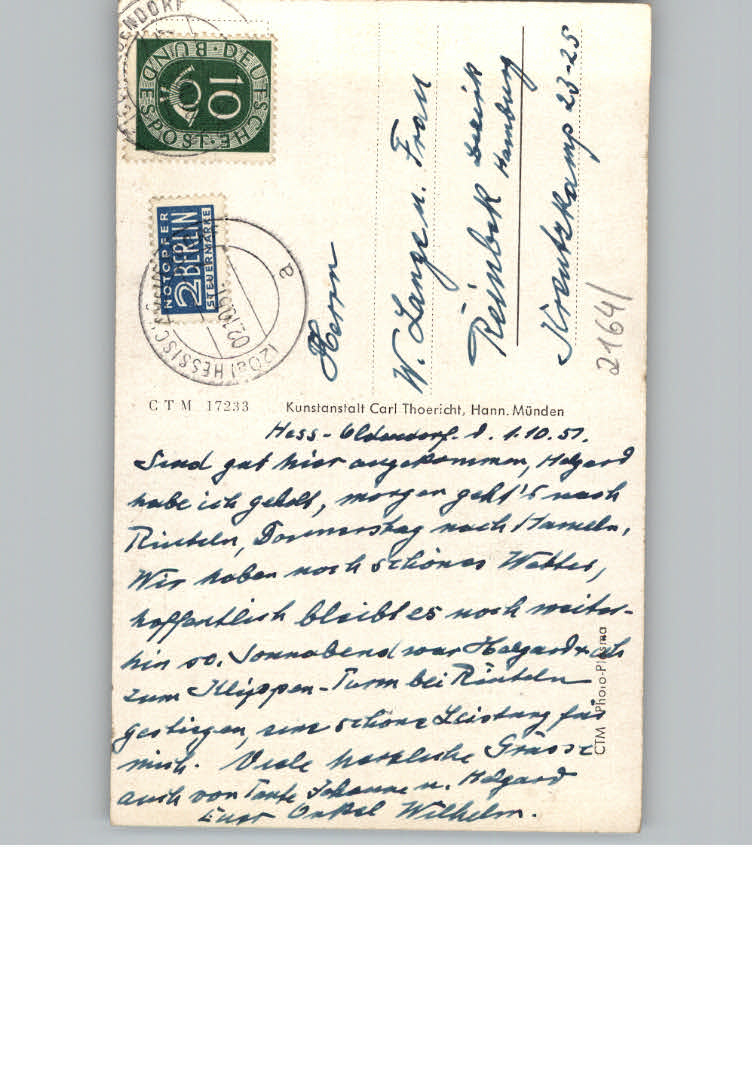 DEUTSCHE BUNDESPOST
10
NOTOPFER
2 BERLIN
STEUERMARKE
(20a) HESSISCH
02.10.
a
ENDORF
Herrn
W. Lange u. Frau
Reinbek
Hamburg
Krautzkamp 23-25
2164/
CTM 17233 Kunstanstalt Carl Thoericht, Hann. Münden
Hess-Oldendorf. d. 1.10.51.
Sind gut hier angekommen, Helgard
habe ich geholt, morgen geht's nach
Rinteln, Donnerstag nach Hameln,
Wir haben noch schönes Wetter,
hoffentlich bleibt es noch weiter-
hin so. Sonnabend war Helgard u. ich
zum Klippen-Turm bei Rinteln
gestiegen, eine schöne Leistung für
mich. Viele herzliche Grüsse
auch von Tante Johanne u. Helgard
Euer Onkel Wilhelm.
CTM Photo-Plasma